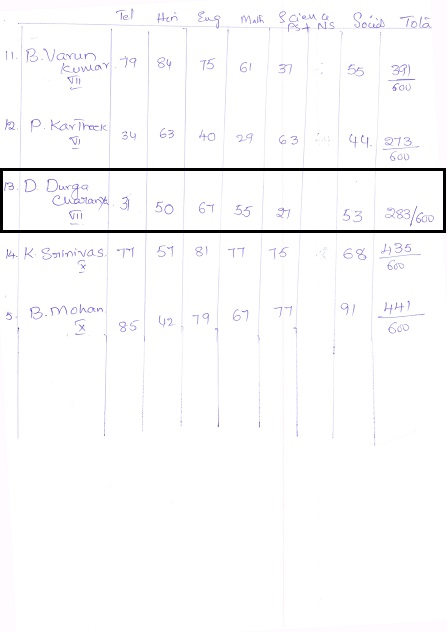 Tel Hin Eng Math Science Social Total
PS + NS
11. B. Varun Kumar 79 84 75 61 37 55 391/600
VII
12. P. Kartheek 34 63 40 29 63 44 273/600
VI
13. D Durga Charan 31 50 67 55 27 53 283/600
VIII
14. K. Srinivas 77 57 81 77 75 68 435/600
X
5. B. Mohan 85 42 79 67 77 91 441/600
X